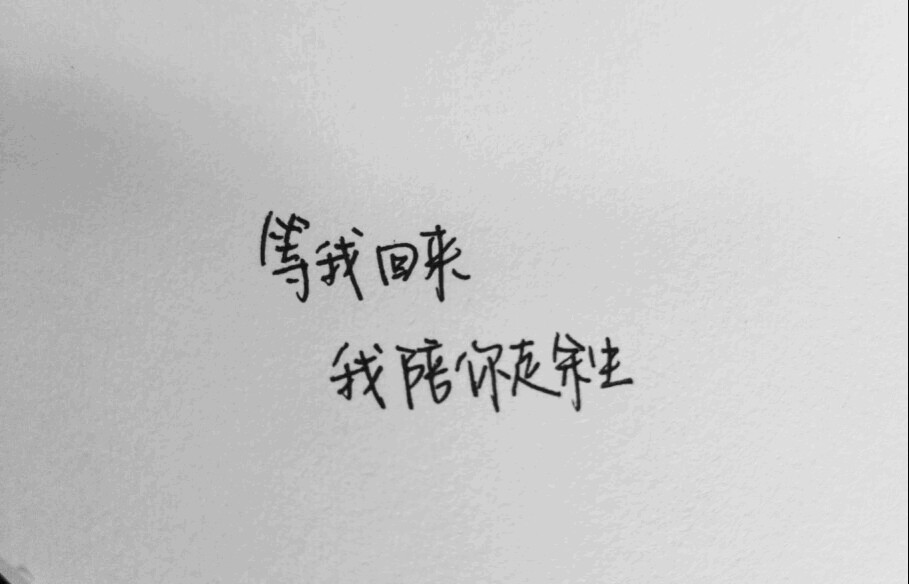 等我回来
我陪你走余生